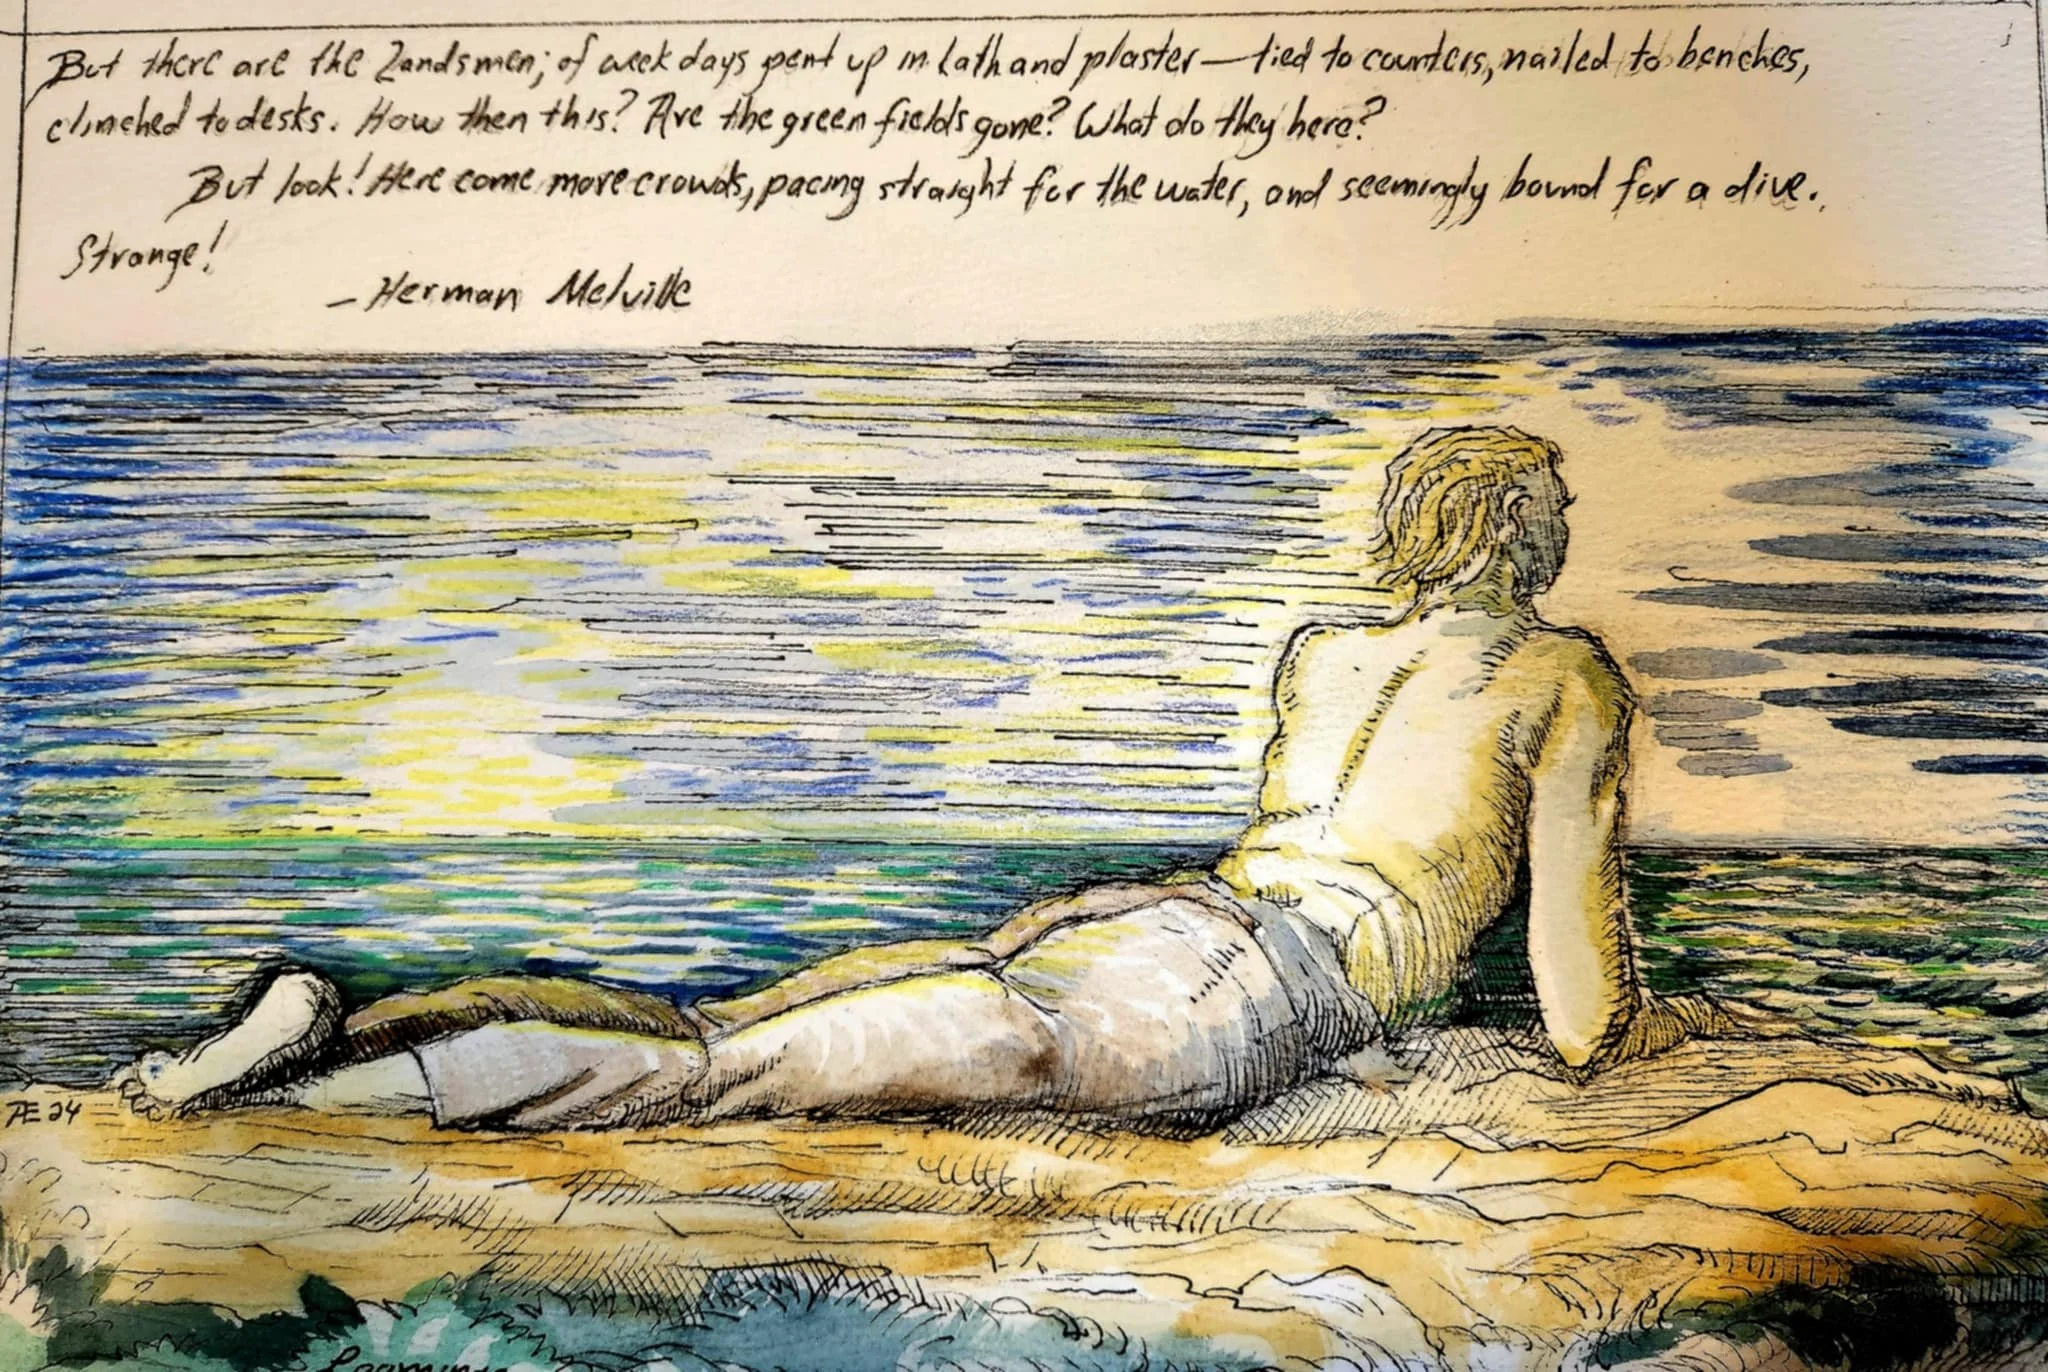 But there are the Landsmen; of week days pent up in lath and plaster—tied to counters, nailed to benches,
clinched to desks. How then this? Are the green fields gone? What do they here?
But look! Here come more crowds, pacing straight for the water, and seemingly bound for a dive.
Strange!
—Herman Melville
Æ 24